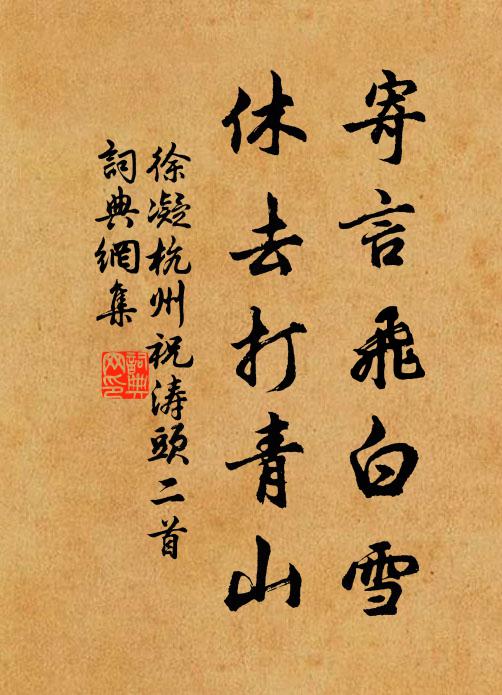 寄言飛白雪
休去打青山
徐凝杭州祝涛頭二首
詞典網集
詞典網印